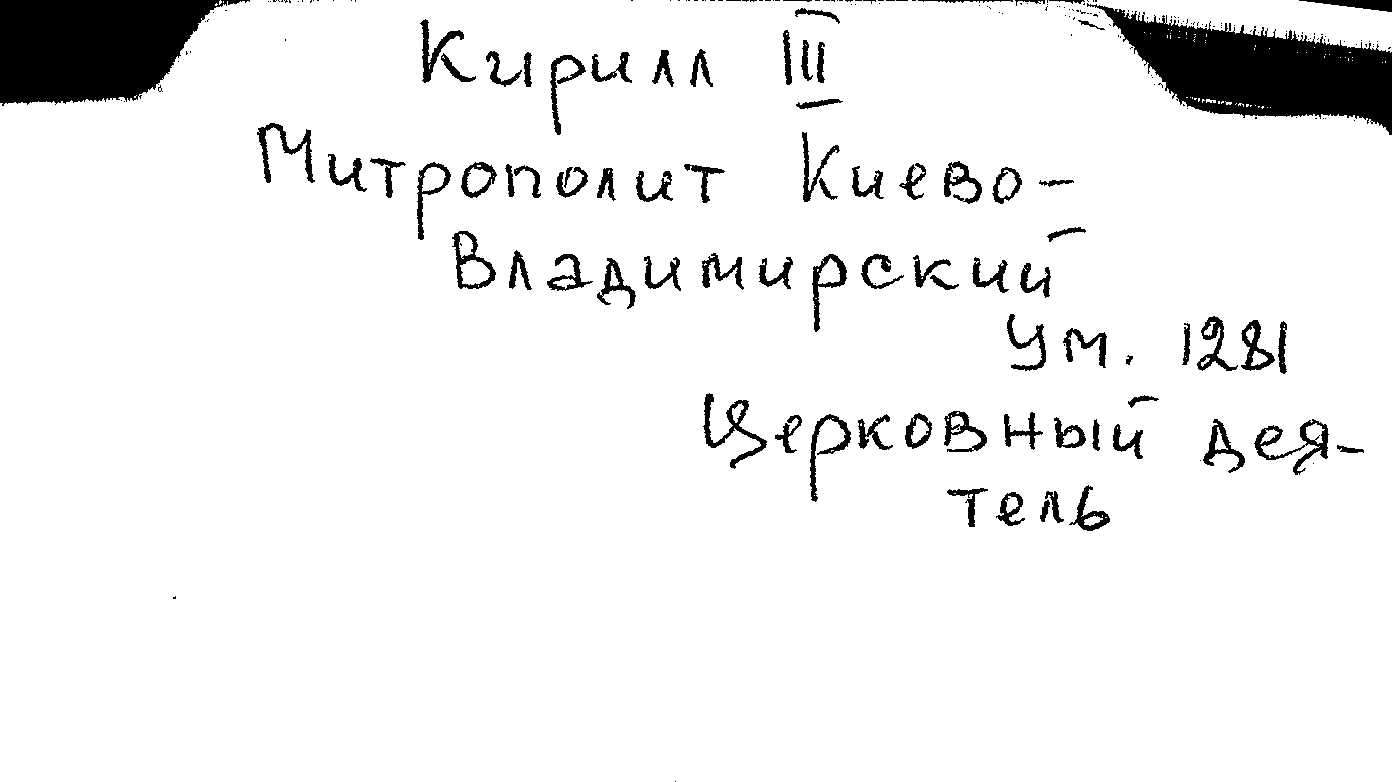 Кирилл III
Митрополит Киево-
Владимирский
ум. 1281
Церковный дея-
тель